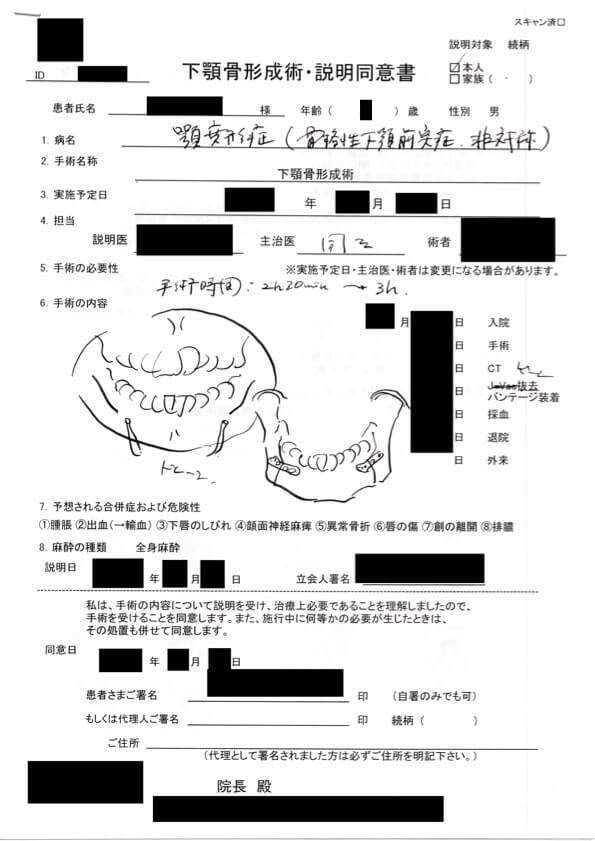 スキャン済□
説明対象 続柄
☑本人
□家族( ・ )
ID
下顎骨形成術・説明同意書
患者氏名 様 年齢( )歳 性別 男
1. 病名 顎変形症(骨格性下顎前突症、非対称)
2. 手術名称 下顎骨形成術
3. 実施予定日 年 月 日
4. 担当
説明医 主治医 同上 術者
5. 手術の必要性 ※実施予定日・主治医・術者は変更になる場合があります。
手術時間:2h20min → 3h.
6. 手術の内容
月 日 入院
日 手術
日 CT
J-Vac抜去
日 バンテージ装着
日 採血
日 退院
日 外来
ドレーン
7. 予想される合併症および危険性
①腫脹 ②出血(→輸血) ③下唇のしびれ ④顔面神経麻痺 ⑤異常骨折 ⑥唇の傷 ⑦創の離開 ⑧排膿
8. 麻酔の種類 全身麻酔
説明日 年 月 日 立会人署名
私は、手術の内容について説明を受け、治療上必要であることを理解しましたので、
手術を受けることを同意します。また、施行中に何等かの必要が生じたときは、
その処置も併せて同意します。
同意日 年 月 日
患者さまご署名 印 (自署のみでも可)
もしくは代理人ご署名 印 続柄( )
ご住所
(代理として署名されました方は必ずご住所を明記下さい。)
院長 殿